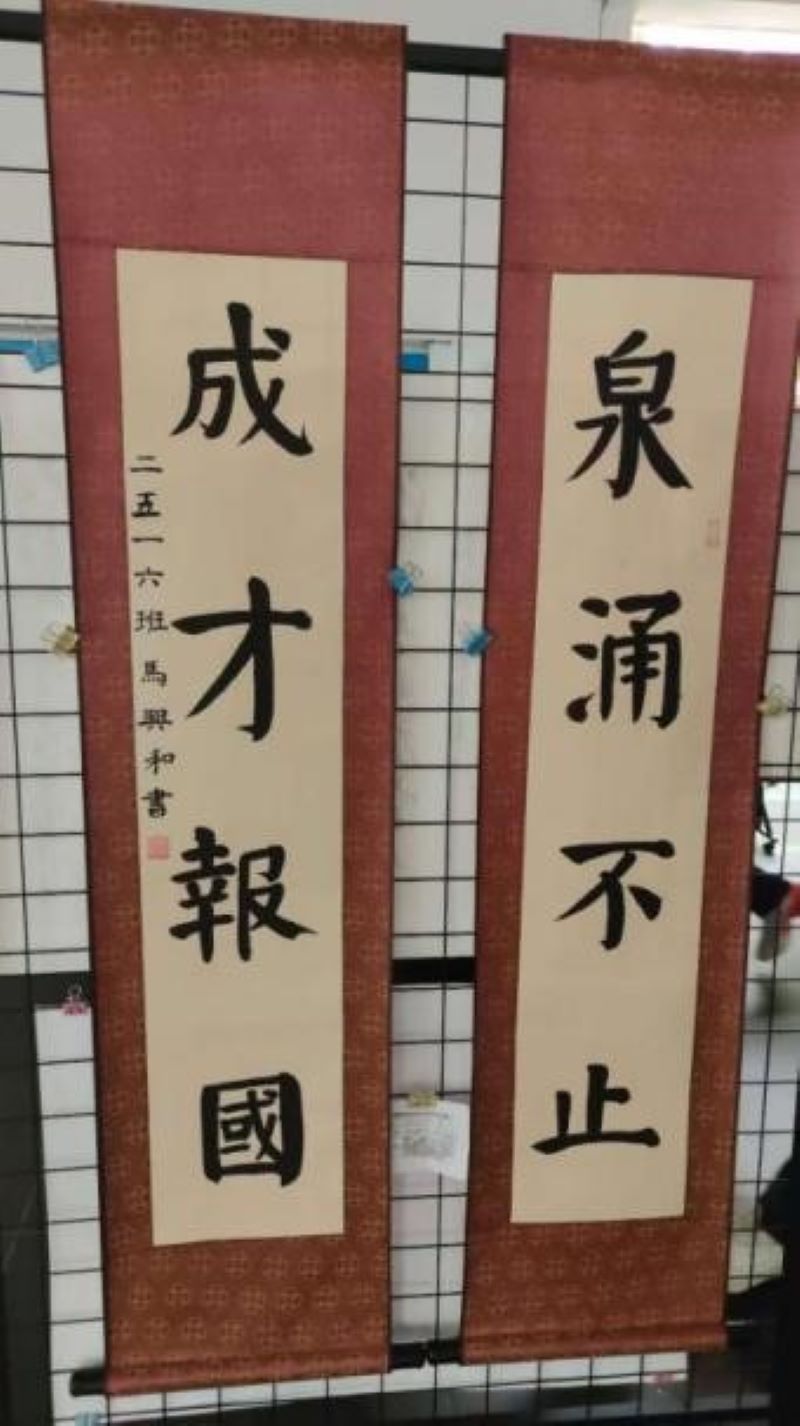 泉涌不止
成才報國
二五一六班馬興和書